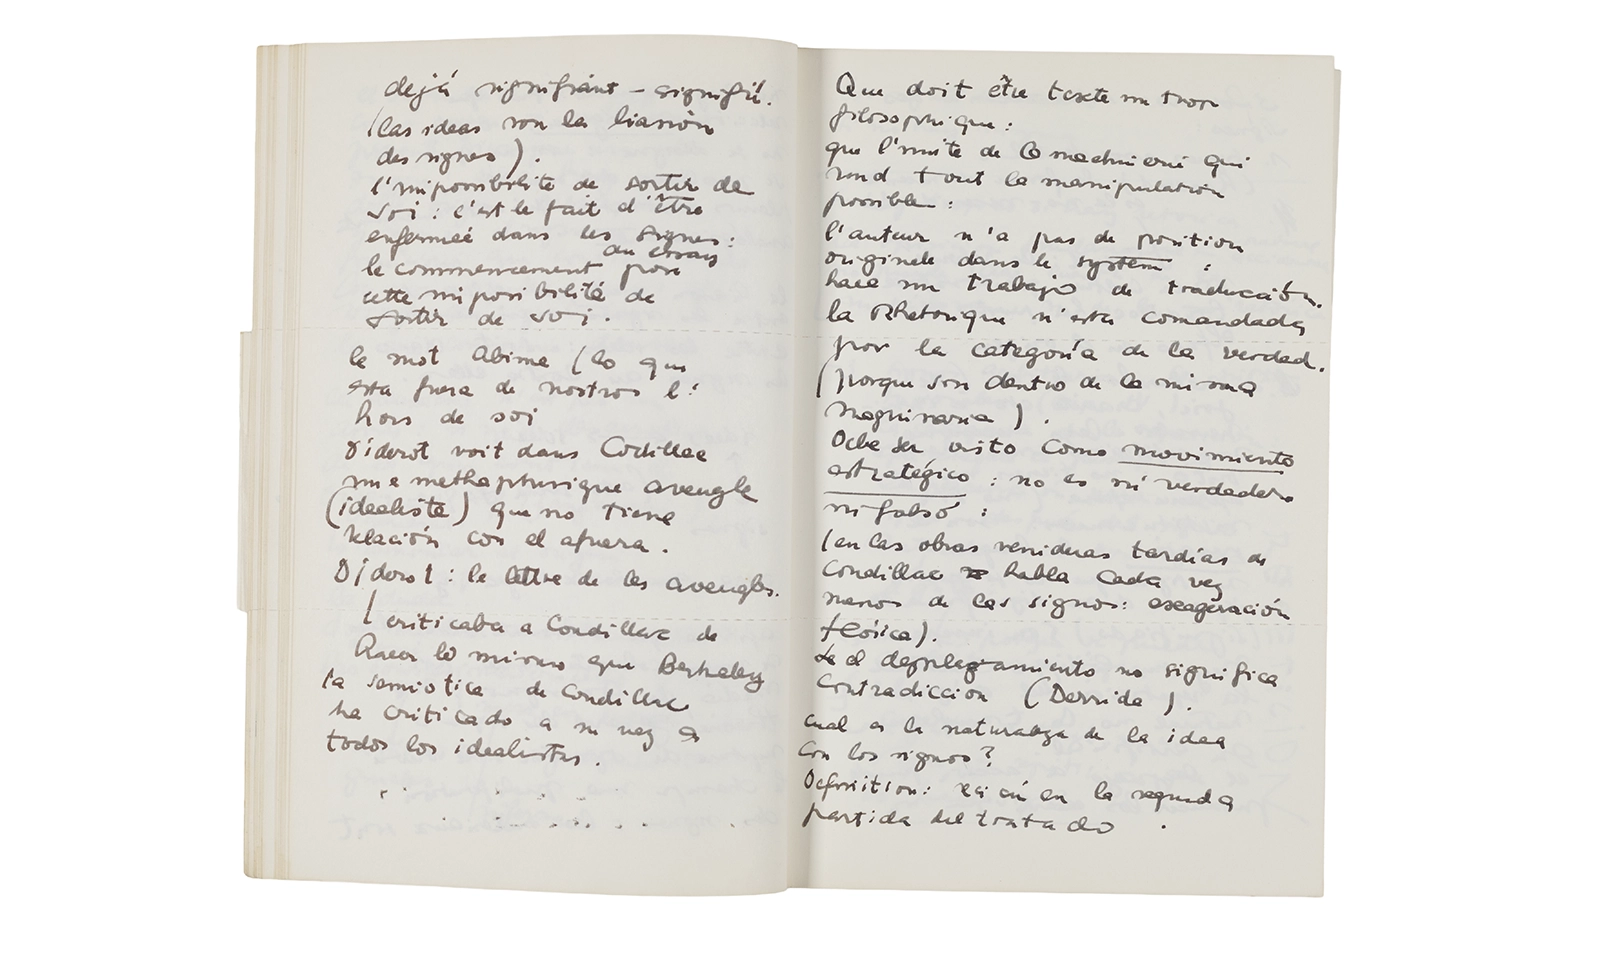 dejá signifiant – signifié.
(las ideas son la liasión
des signes).
l'impossibilité de sortir de
soi : c'est le fait d'être
enfermeé dans les signes :
au essais
le commencement pose
cette impossibilité de
sortir de soi.
le mot Abime (lo que
esta fuera de nostros l'
hors de soi
Diderot voit dans Codillac
une methaphysique aveugle
(idealiste) que no tiene
relación con el afuera.
Diderot : le lettre de les aveugles.
criticaba a Condillac de
hacer lo mismo que Berkeley
la semiotica de Condillac
ha criticado a su vez a
todos los idealistas.
Que doit être texte
filosophique :
que l'imite de la machinerie qui
rend tout la manipulation
possible :
l'auteur n'a pas de position
originele dans le system :
hace un trabajo de traducción.
la Rhetorique n'esta comandada
por la categoría de la verdad.
(porque son dentro de la misma
maquinaria).
Debe ser visto como movimiento
estratégico : no es ni verdadero
ni falsó :
(en las obras venideras tardías de
Condillac habla cada vez
menos de las signos: exageración
teórica).
el desplegamiento no significa
contradiccion (Derrida).
cual es la naturaleza de la idea
con los signos?
Definition: en la segunda
partida del tratado.